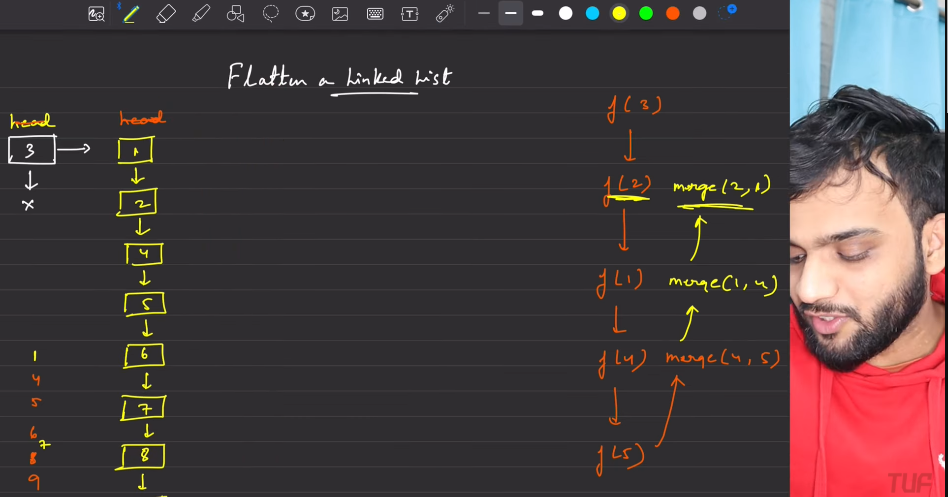 Flatten a Linked List
head head
3 1
x 2
4
5
1 6
4
5 7
6
7
8 8
9
f(3)
f(2) merge(2,1)
f(1) merge(1,4)
f(4) merge(4,5)
f(5)
TUF